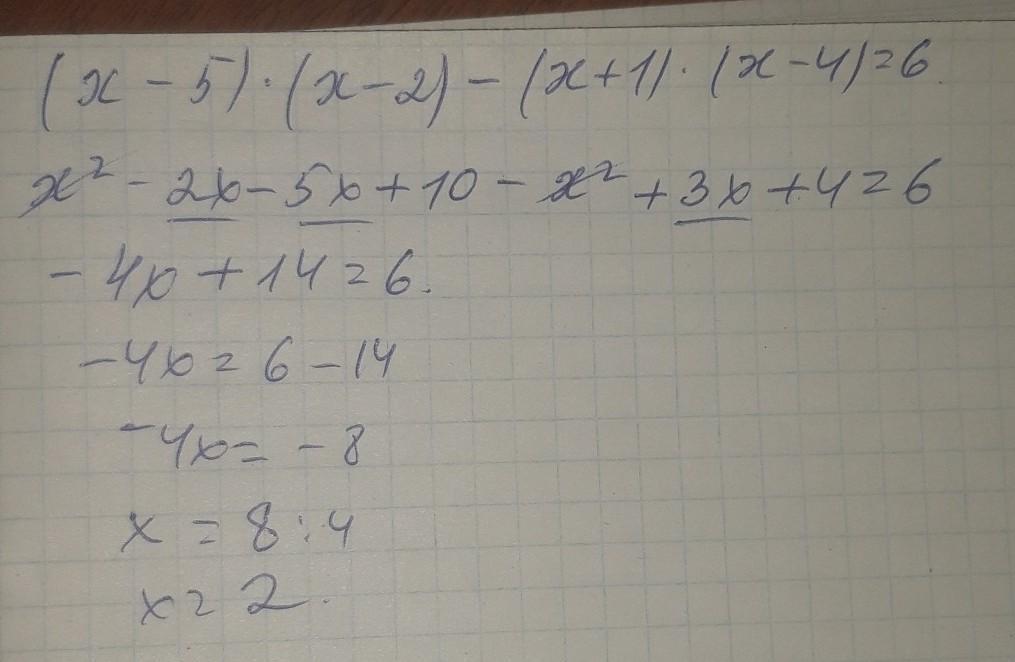 (x - 5) · (x - 2) - (x + 1) · (x - 4) = 6
x² - 2x - 5x + 10 - x² + 3x + 4 = 6
- 4x + 14 = 6.
-4x = 6 - 14
-4x = - 8
x = 8 : 4
x = 2.